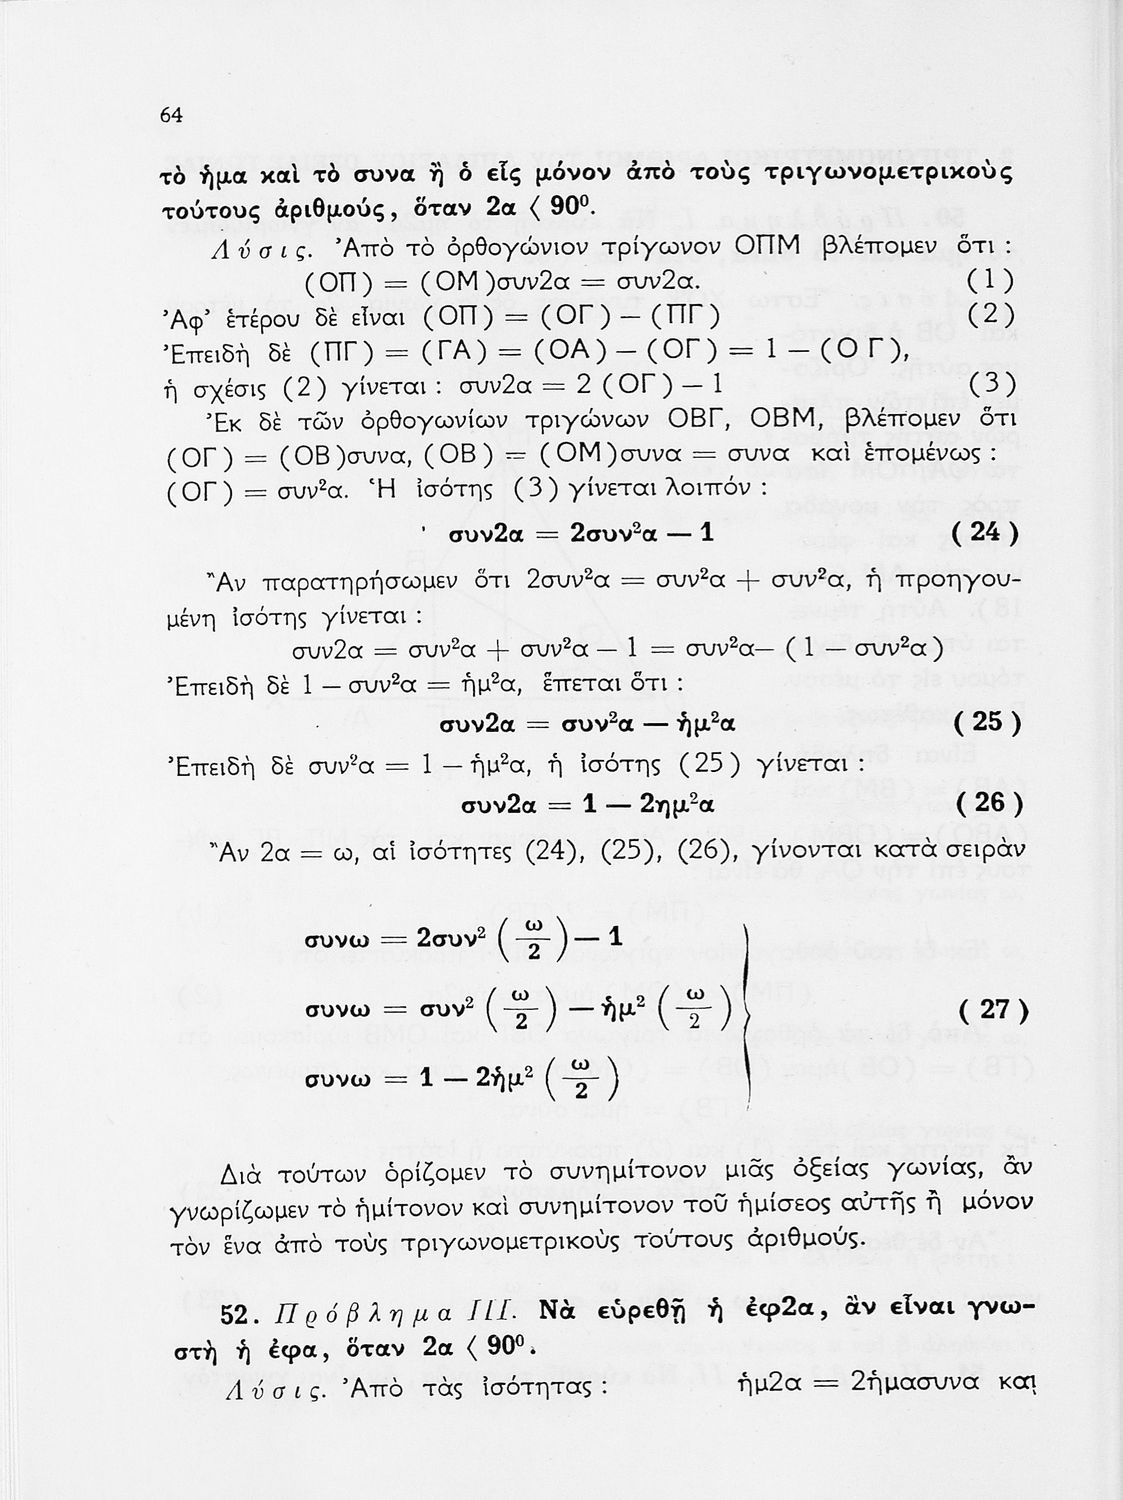 64
τὸ ἡμα καὶ τὸ συνα ἢ ὁ εἷς μόνον ἀπὸ τοὺς τριγωνομετρικοὺς
τούτους ἀριθμούς, ὅταν 2α < 90⁰.
Λύσις. Ἀπὸ τὸ ὀρθογώνιον τρίγωνον ΟΠΜ βλέπομεν ὅτι :
(ΟΠ) = (ΟΜ)συν2α = συν2α. (1)
Ἀφ' ἑτέρου δὲ εἶναι (ΟΠ) = (ΟΓ) – (ΠΓ) (2)
Ἐπειδὴ δὲ (ΠΓ) = (ΓΑ) = (ΟΑ) – (ΟΓ) = 1 – (ΟΓ),
ἡ σχέσις (2) γίνεται : συν2α = 2 (ΟΓ) – 1 (3)
Ἐκ δὲ τῶν ὀρθογωνίων τριγώνων ΟΒΓ, ΟΒΜ, βλέπομεν ὅτι
(ΟΓ) = (ΟΒ)συνα, (ΟΒ) = (ΟΜ)συνα = συνα καὶ ἑπομένως :
(ΟΓ) = συν²α. Ἡ ἰσότης (3) γίνεται λοιπόν :
συν2α = 2συν²α — 1 (24)
Ἂν παρατηρήσωμεν ὅτι 2συν²α = συν²α + συν²α, ἡ προηγου-
μένη ἰσότης γίνεται :
συν2α = συν²α + συν²α – 1 = συν²α– (1 – συν²α)
Ἐπειδὴ δὲ 1 – συν²α = ἡμ²α, ἕπεται ὅτι :
συν2α = συν²α — ἡμ²α (25)
Ἐπειδὴ δὲ συν²α = 1 – ἡμ²α, ἡ ἰσότης (25) γίνεται :
συν2α = 1 — 2ημ²α (26)
Ἂν 2α = ω, αἱ ἰσότητες (24), (25), (26), γίνονται κατὰ σειρὰν
συνω = 2συν² (ω/2) — 1
συνω = συν² (ω/2) — ἡμ² (ω/2) (27)
συνω = 1 — 2ἡμ² (ω/2)
Διὰ τούτων ὁρίζομεν τὸ συνημίτονον μιᾶς ὀξείας γωνίας, ἂν
γνωρίζωμεν τὸ ἡμίτονον καὶ συνημίτονον τοῦ ἡμίσεος αὐτῆς ἢ μόνον
τὸν ἕνα ἀπὸ τοὺς τριγωνομετρικοὺς τούτους ἀριθμούς.
52. Πρόβλημα III. Νὰ εὑρεθῇ ἡ ἐφ2α, ἂν εἶναι γνω-
στὴ ἡ ἐφα, ὅταν 2α < 90⁰.
Λύσις. Ἀπὸ τὰς ἰσότητας : ἡμ2α = 2ἡμασυνα και